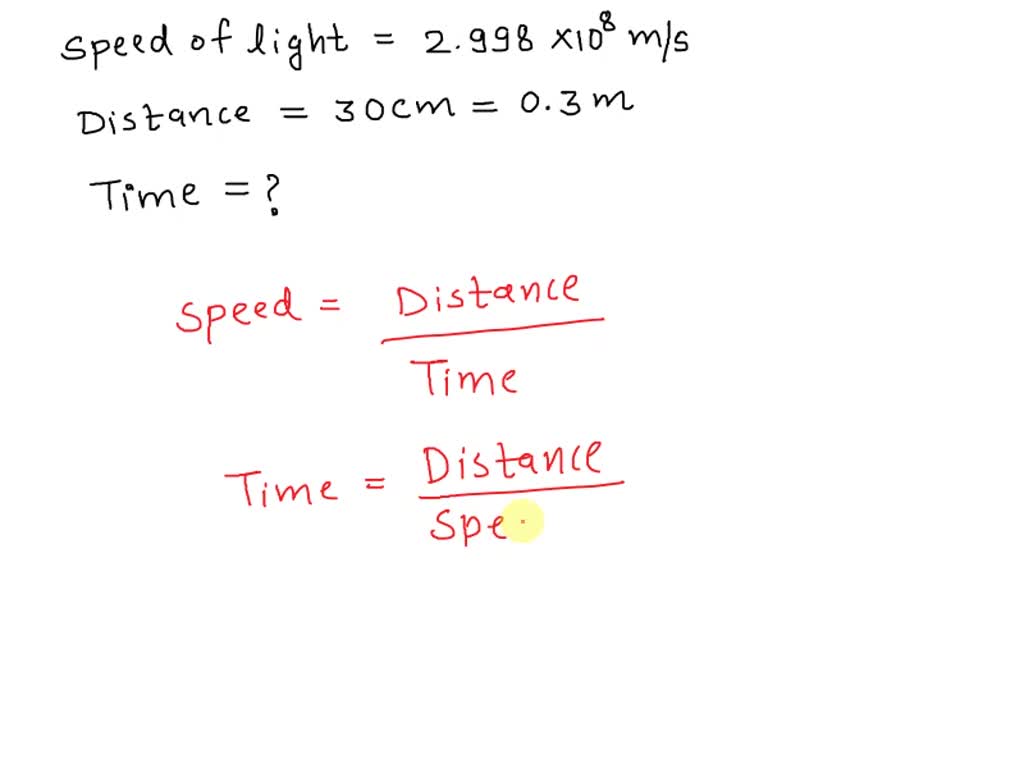 Speed of light = 2.998 ×10⁸ m/s
Distance = 30cm = 0.3m
Time = ?
Speed = Distance / Time
Time = Distance / Spe